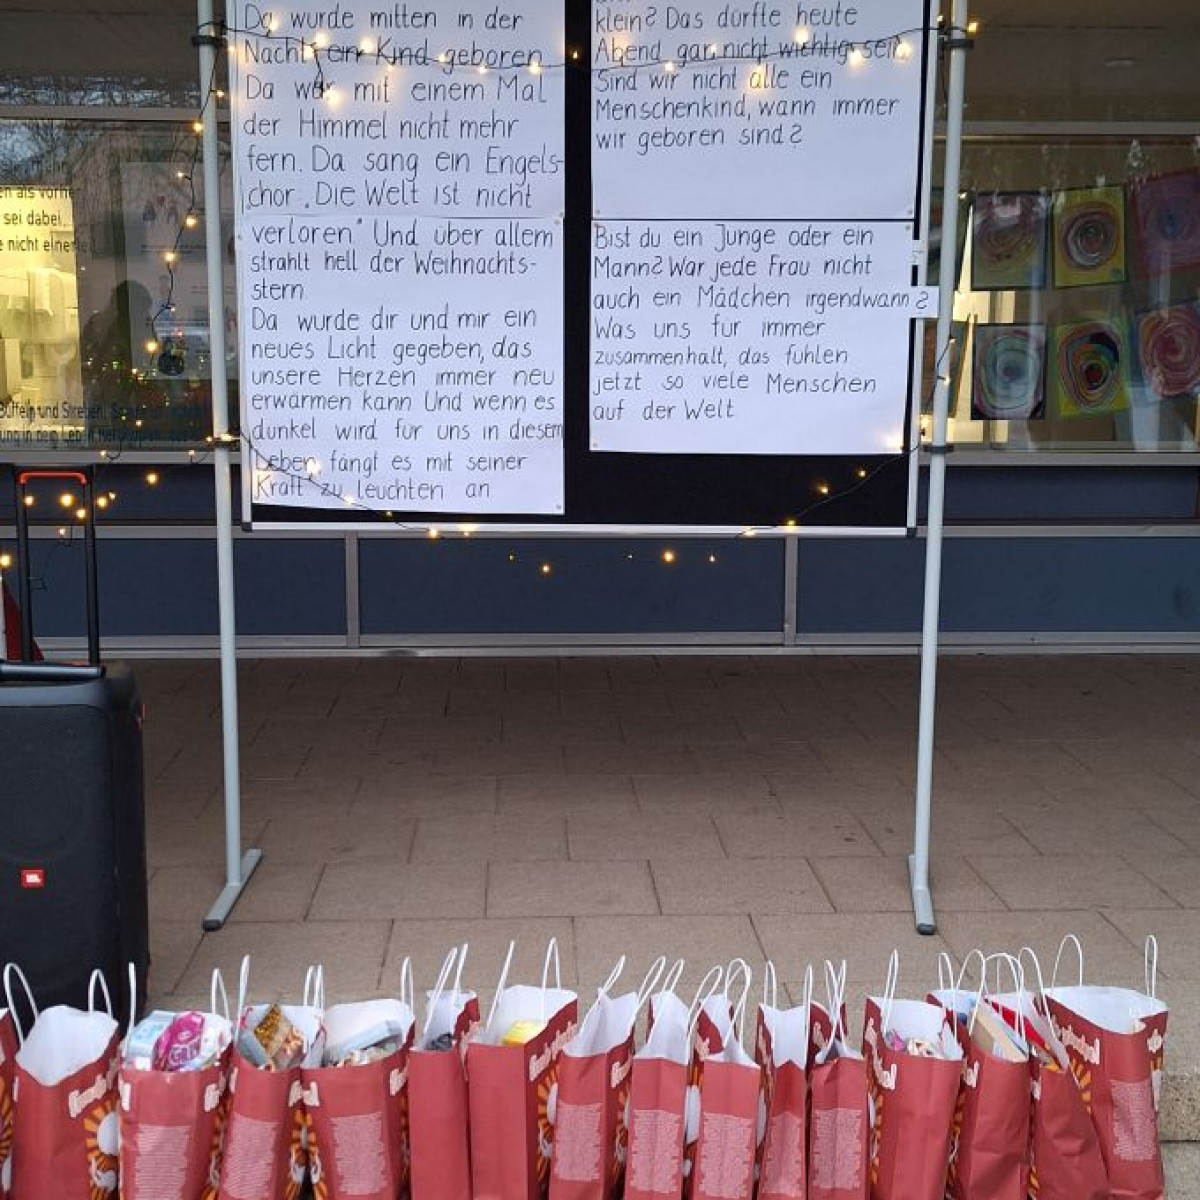 Da wurde mitten in der
Nacht ein Kind geboren
Da war mit einem Mal
der Himmel nicht mehr
fern. Da sang ein Engels-
chor „Die Welt ist nicht
verloren" Und über allem
strahlt hell der Weihnachts-
stern
Da wurde dir und mir ein
neues Licht gegeben, das
unsere Herzen immer neu
erwärmen kann Und wenn es
dunkel wird für uns in diesem
Leben, fängt es mit seiner
Kraft zu leuchten an
klein? Das dürfte heute
Abend gar nicht wichtig sein.
Sind wir nicht alle ein
Menschenkind, wann immer
wir geboren sind?
Bist du ein Junge oder ein
Mann? War jede Frau nicht
auch ein Mädchen irgendwann?
Was uns für immer
zusammenhält, das fühlen
jetzt so viele Menschen
auf der Welt
en als vorher
sei dabei
nicht
Büffeln und Streben!
JBL